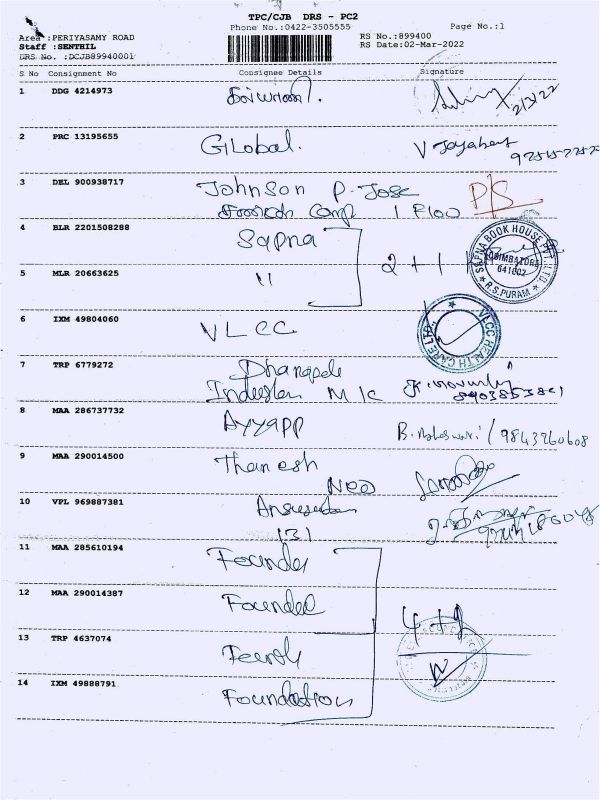 TPC/CJB DRS - PC2
Phone No.:0422-3505555
Page No.:1
Area :PERIYASAMY ROAD
RS No.:899400
Staff :SENTHIL
RS Date:02-Mar-2022
DRS No. :DCJB89940001
S No Consignment No Consignee Details Signature
1 DDG 4214973
2/3/22
2 PRC 13195655 GLobal. V Jayahary
3 DEL 900938717 Johnson P. Jose P/S
Comp 1 Floo
4 BLR 2201508288 Sapna 2 + 1
SAPNA BOOK HOUSE PVT. LTD
COIMBATORE
641002
R.S. PURAM
5 MLR 20663625 "
6 IXM 49804060 VLCC
VLCC HEALTH CARE LTD.
7 TRP 6779272
M/c
8 MAA 286737732 AYYAPP B. Maheswari / 9843260608
9 MAA 290014500 Thanesh
Neo
10 VPL 969887381
131
11 MAA 285610194 Founder
12 MAA 290014387 Founded
4 +
13 TRP 4637074
14 IXM 49888791 Foundation